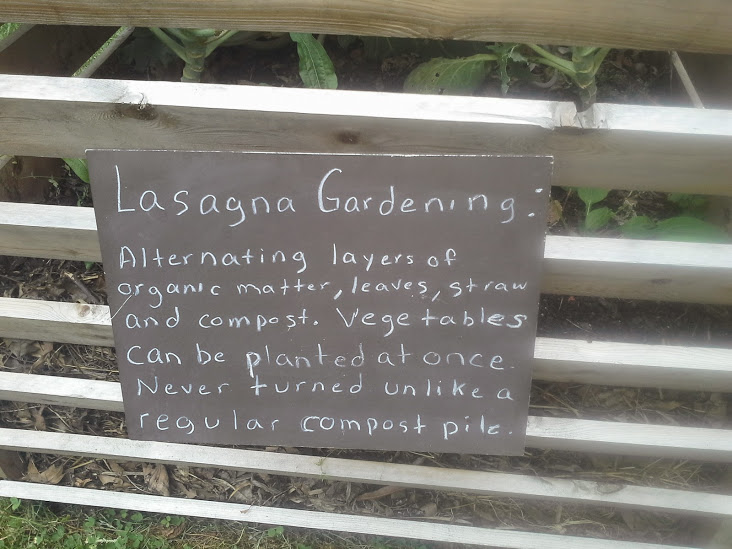 Lasagna Gardening:
Alternating layers of
organic matter, leaves, straw
and compost. Vegetables
can be planted at once.
Never turned unlike a
regular compost pile.